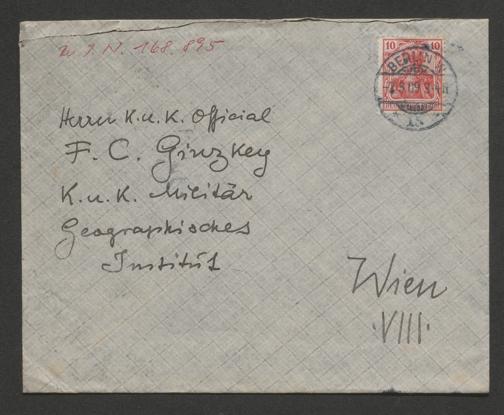 z I. N. 168.895
10 10
BERLIN W.
Herrn K.u.K. Official
F. C. Ginzkey
K.u.K. Militär
Geographisches
Institut
Wien
VIII.